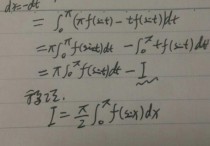 dx=-dt
= ∫₀^π (πf(sint) - tf(sint))dt
= π∫₀^π f(sint)dt - ∫₀^π tf(sint)dt
= π∫₀^π f(sint)dt - I
I = π/2 ∫₀^π f(sinx)dx